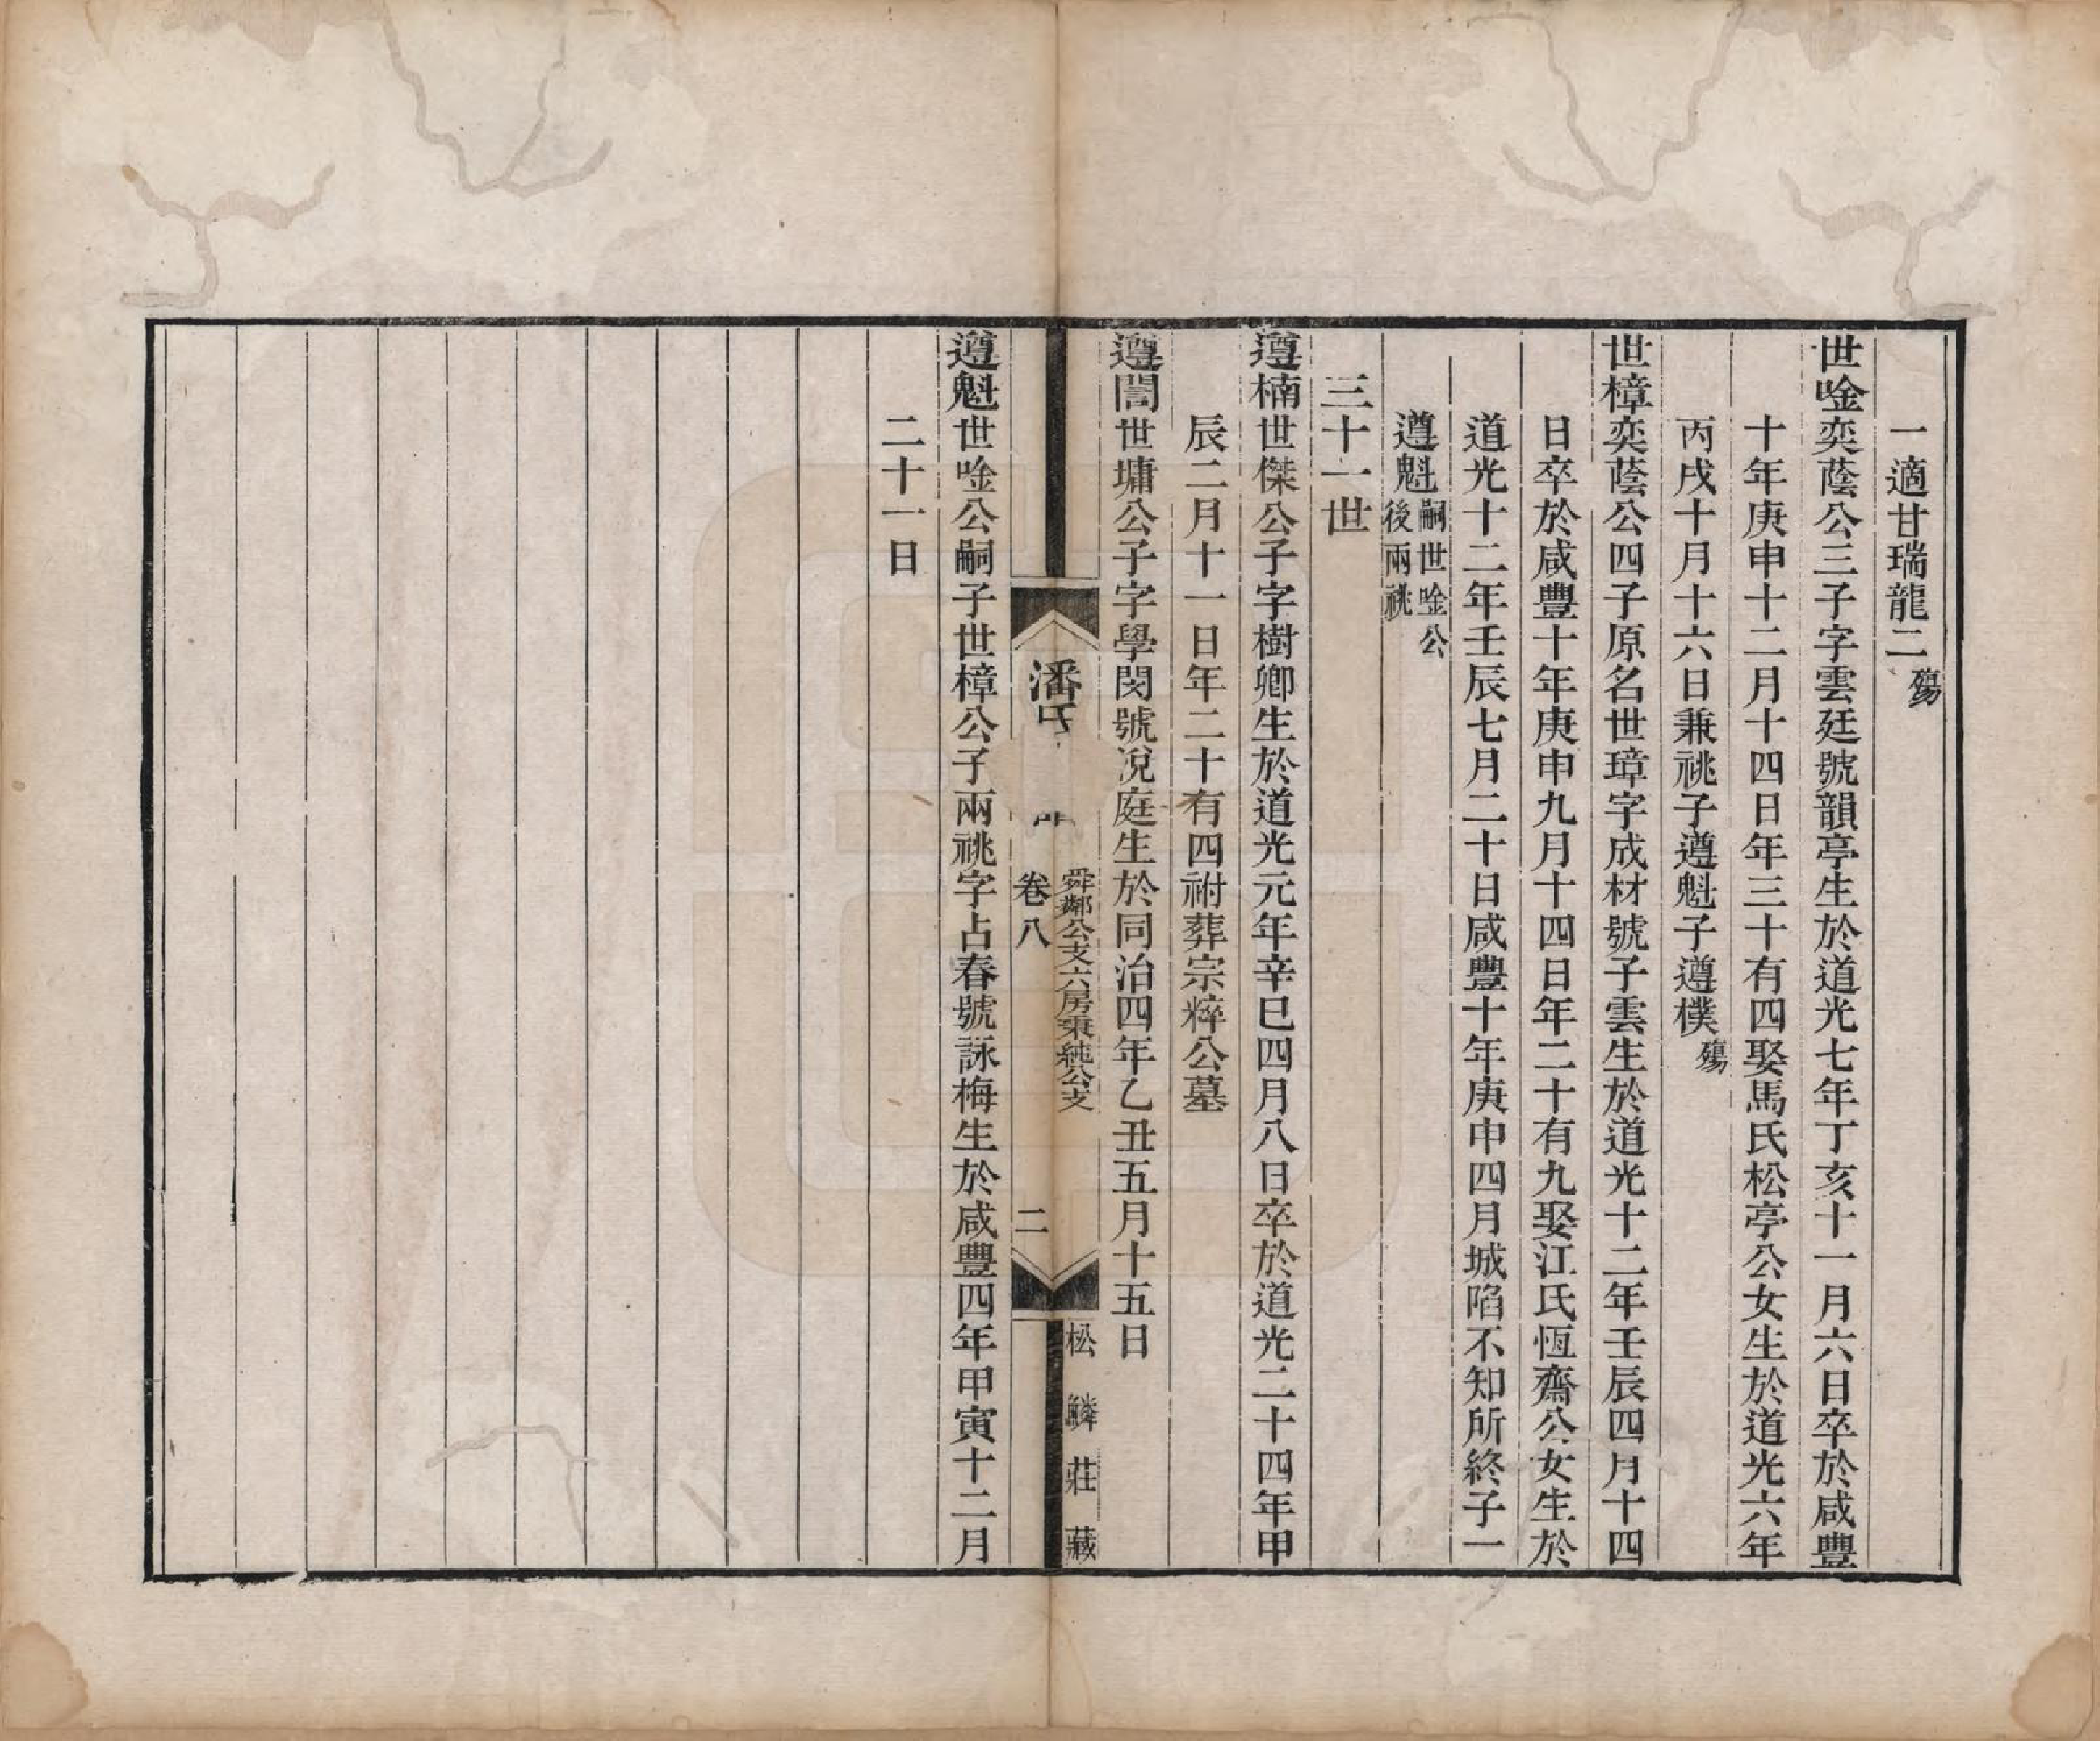 一適甘瑞龍二殤
世唫奕蔭公三子字雲廷號韻亭生於道光七年丁亥十一月六日卒於咸豐
十年庚申十二月十四日年三十有四娶馬氏松亭公女生於道光六年
丙戌十月十六日兼祧子遵魁子遵樸殤
世樟奕蔭公四子原名世璋字成材號子雲生於道光十二年壬辰四月十四
日卒於咸豐十年庚申九月十四日年二十有九娶江氏恆齋公女生於
道光十二年壬辰七月二十日咸豐十年庚申四月城陷不知所終子一
遵魁嗣世唫公後兩祧
三十一世
遵楠世傑公子字樹卿生於道光元年辛巳四月八日卒於道光二十四年甲
辰二月十一日年二十有四祔葬宗粹公墓
遵誾世墉公子字學閔號說庭生於同治四年乙丑五月十五日
潘氏
卷八
舜鄰公支六房秉純公支
二
松鱗莊藏
遵魁世唫公嗣子世樟公子兩祧字占春號詠梅生於咸豐四年甲寅十二月
二十一日